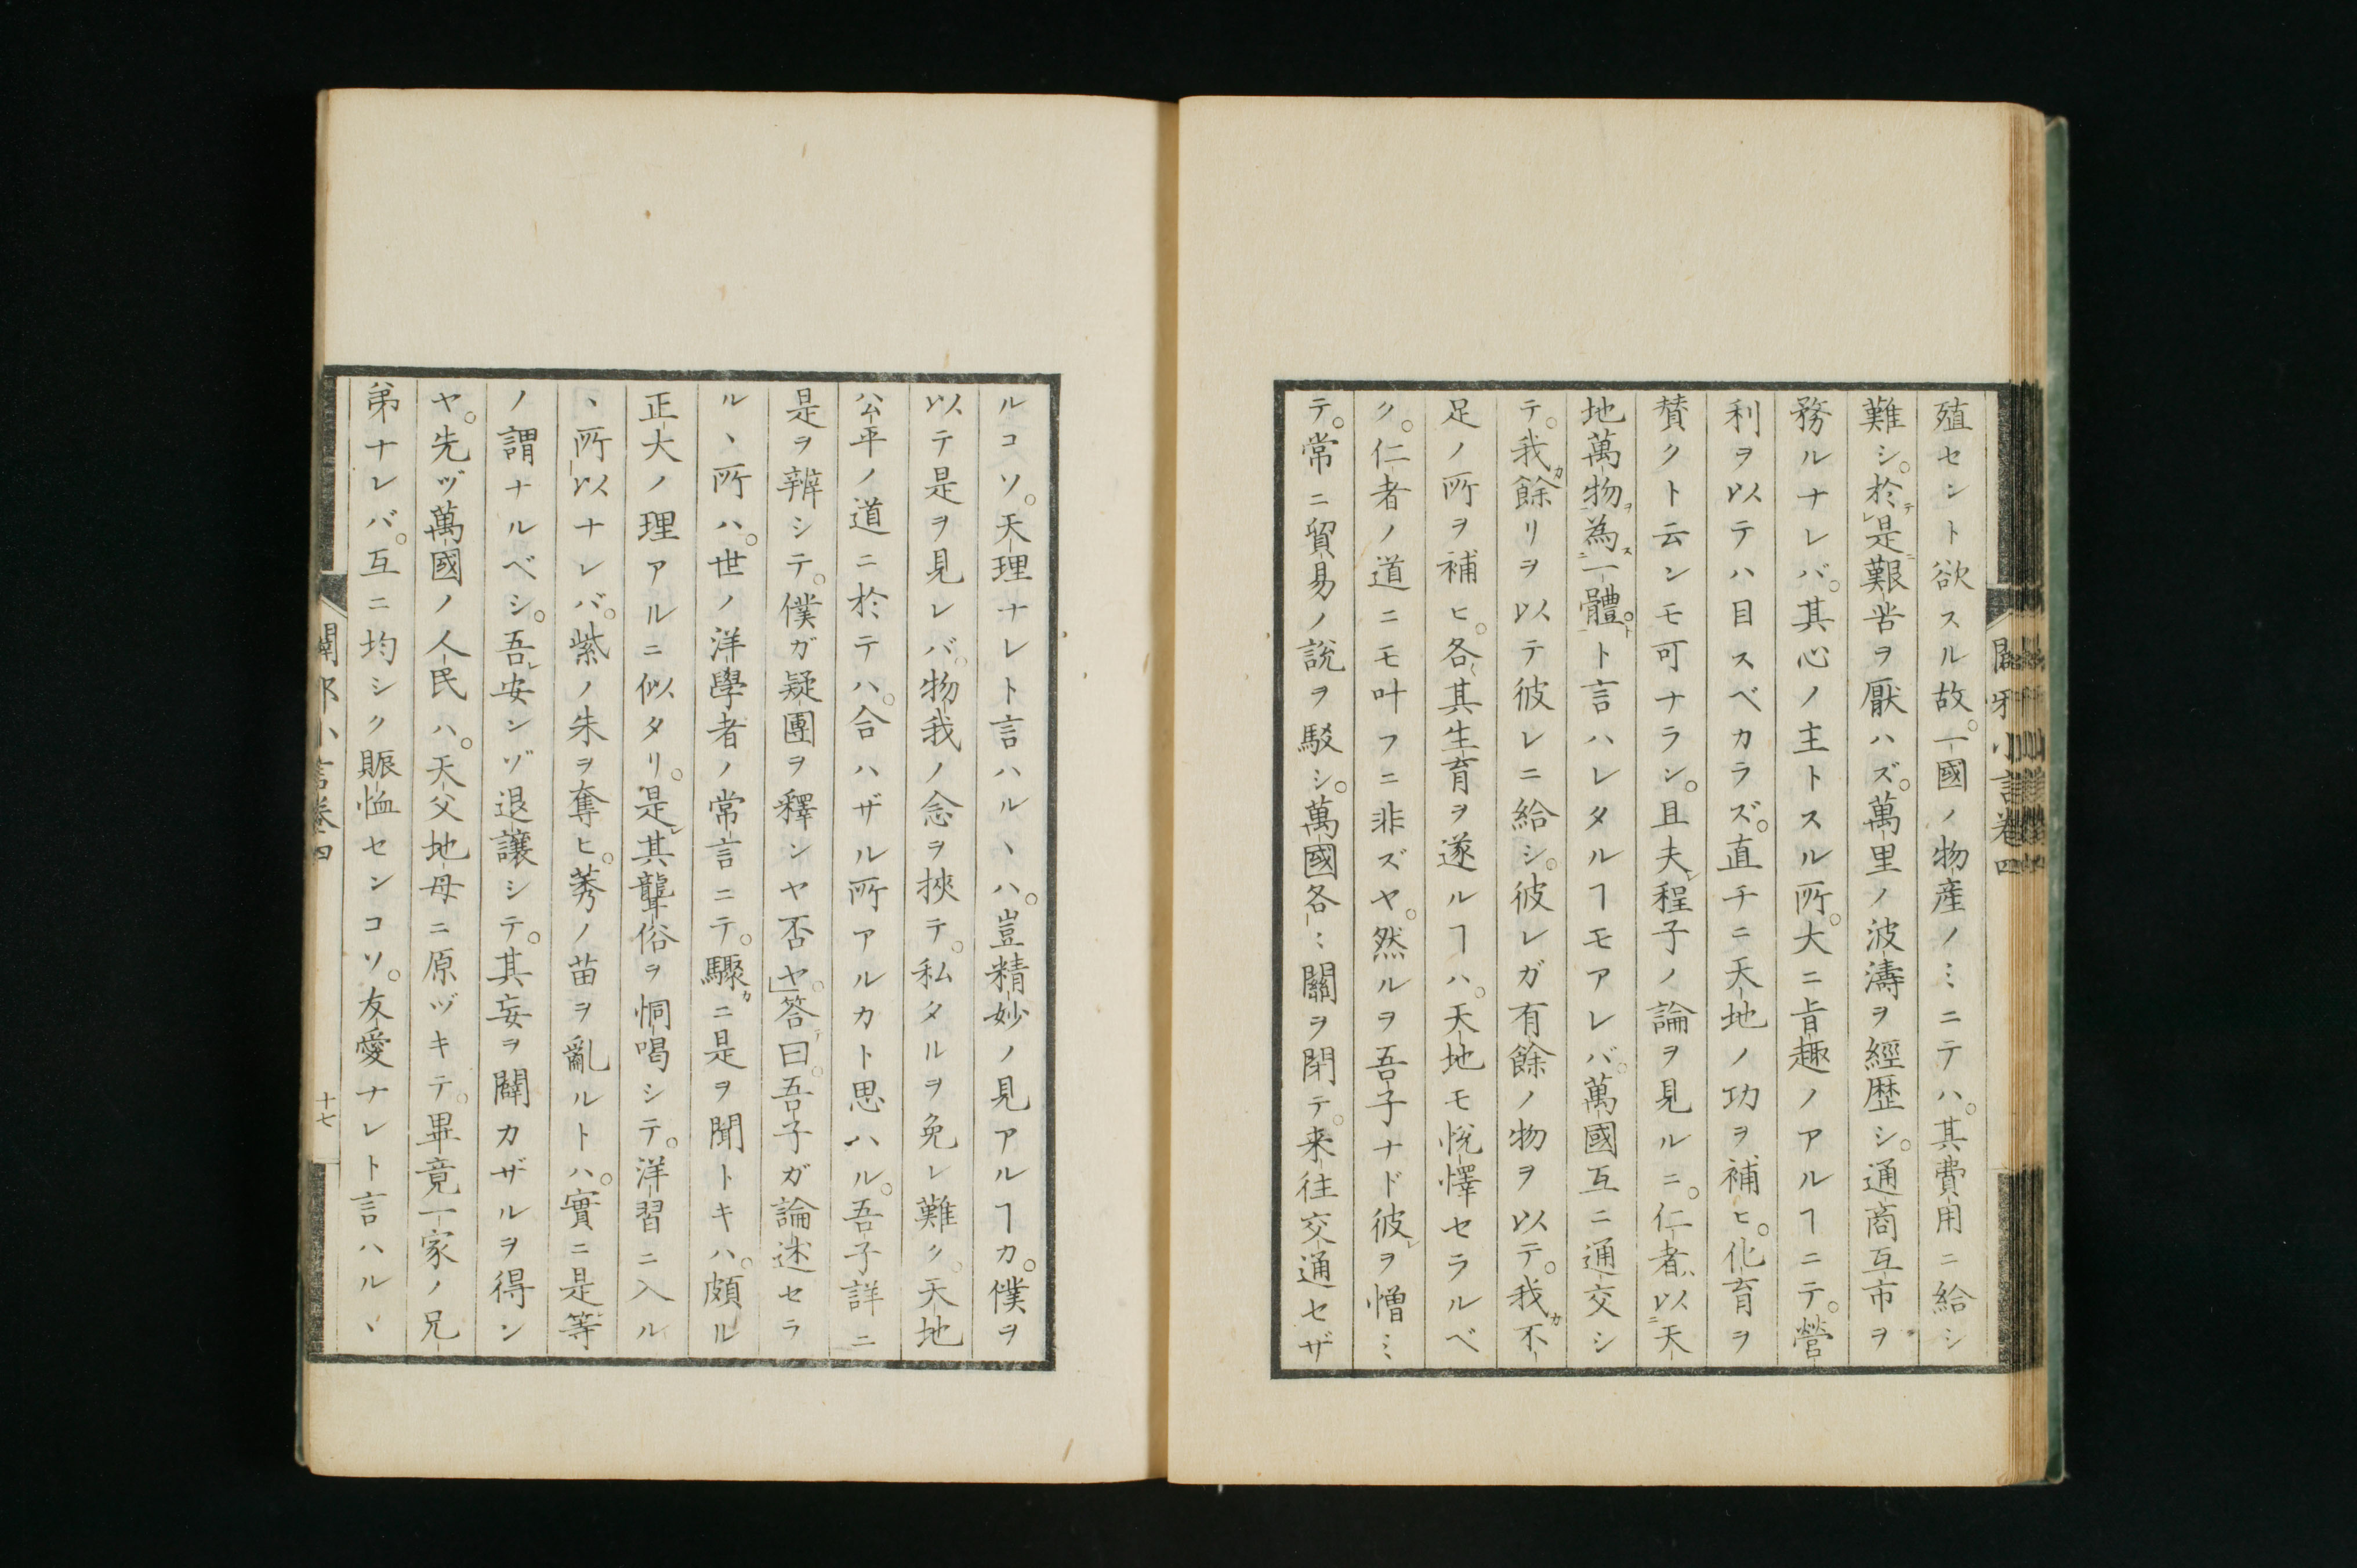 殖セント欲スル故。一國ノ物産ノミニテハ。其費用ニ給シ
難シ。於是艱苦ヲ厭ハズ。萬里ノ波濤ヲ經歴シ。通商互市ヲ
務ルナレバ。其心ノ主トスル所。大ニ旨趣ノアルヿニテ。營
利ヲ以テハ目スベカラズ。直チニ天地ノ功ヲ補ヒ。化育ヲ
賛クト云ンモ可ナラン。且夫程子ノ論ヲ見ルニ。仁者以天
地萬物為一體ト言ハレタルヿモアレバ。萬國互ニ通交シ
テ。我餘リヲ以テ彼レニ給シ。彼レガ有餘ノ物ヲ以テ。我不
足ノ所ヲ補ヒ。各其生育ヲ遂ルヿハ。天地モ悅懌セラルベ
ク。仁者ノ道ニモ叶フニ非ズヤ。然ルヲ吾子ナド彼ヲ憎ミ
テ。常ニ貿易ノ説ヲ駁シ。萬國各〻關ヲ閉テ。来往交通セザ
闢邪小言卷四
ルコソ。天理ナレト言ハルヽハ。豈精妙ノ見アルヿカ。僕ヲ
以テ是ヲ見レバ。物我ノ念ヲ挾テ。私タルヲ免レ難ク。天地
公平ノ道ニ於テハ。合ハザル所アルカト思ハル。吾子詳ニ
是ヲ辨シテ。僕ガ疑團ヲ釋ンヤ否ヤ」答曰。吾子ガ論述セラ
ルヽ所ハ。世ノ洋學者ノ常言ニテ。驟ニ是ヲ聞トキハ。頗ル
正大ノ理アルニ似タリ。是其聾俗ヲ恫喝シテ。洋習ニ入ル
ヽ所以ナレバ。紫ノ朱ヲ奪ヒ。莠ノ苗ヲ亂ルトハ。實ニ是等
ノ謂ナルベシ。吾安ンゾ退讓シテ。其妄ヲ闢カザルヲ得ン
ヤ。先ヅ萬國ノ人民ハ。天父地母ニ原ヅキテ。畢竟一家ノ兄
弟ナレバ。互ニ均シク賑恤センコソ。友愛ナレト言ハルヽ
闢邪小言卷四
十七